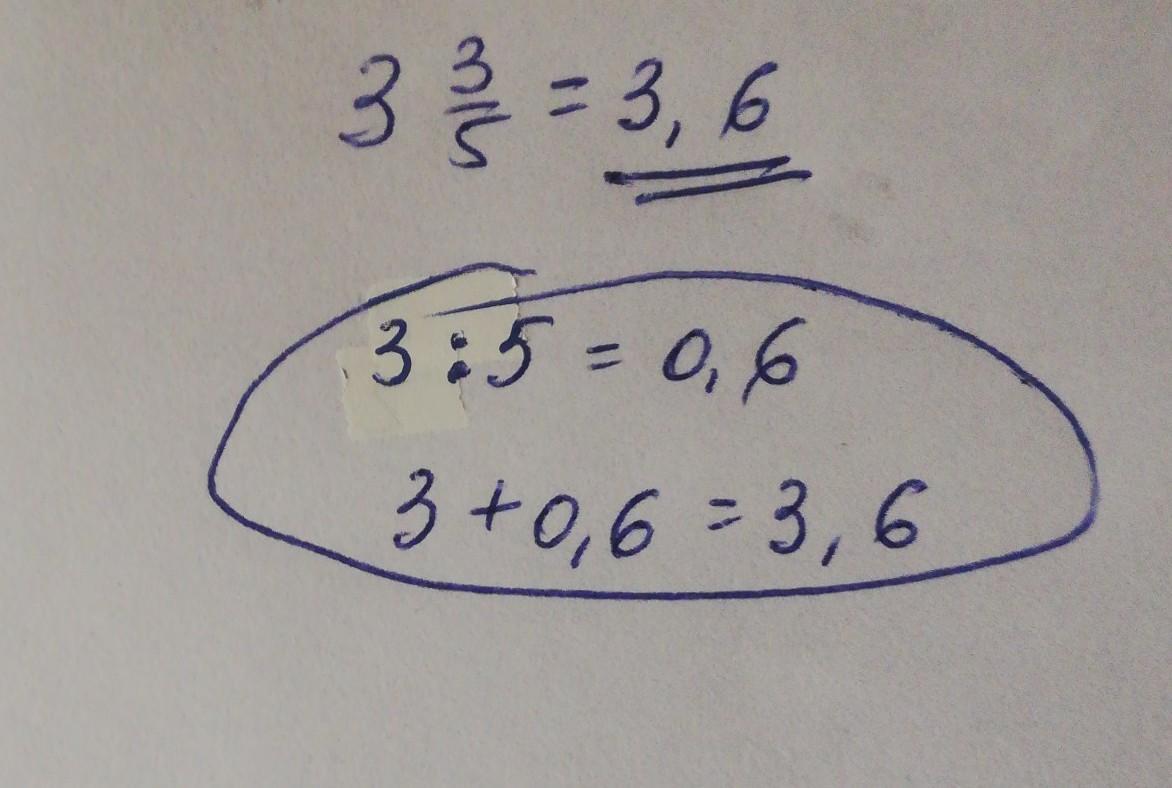 3 3/5 = 3,6
3 : 5 = 0,6
3 + 0,6 = 3,6